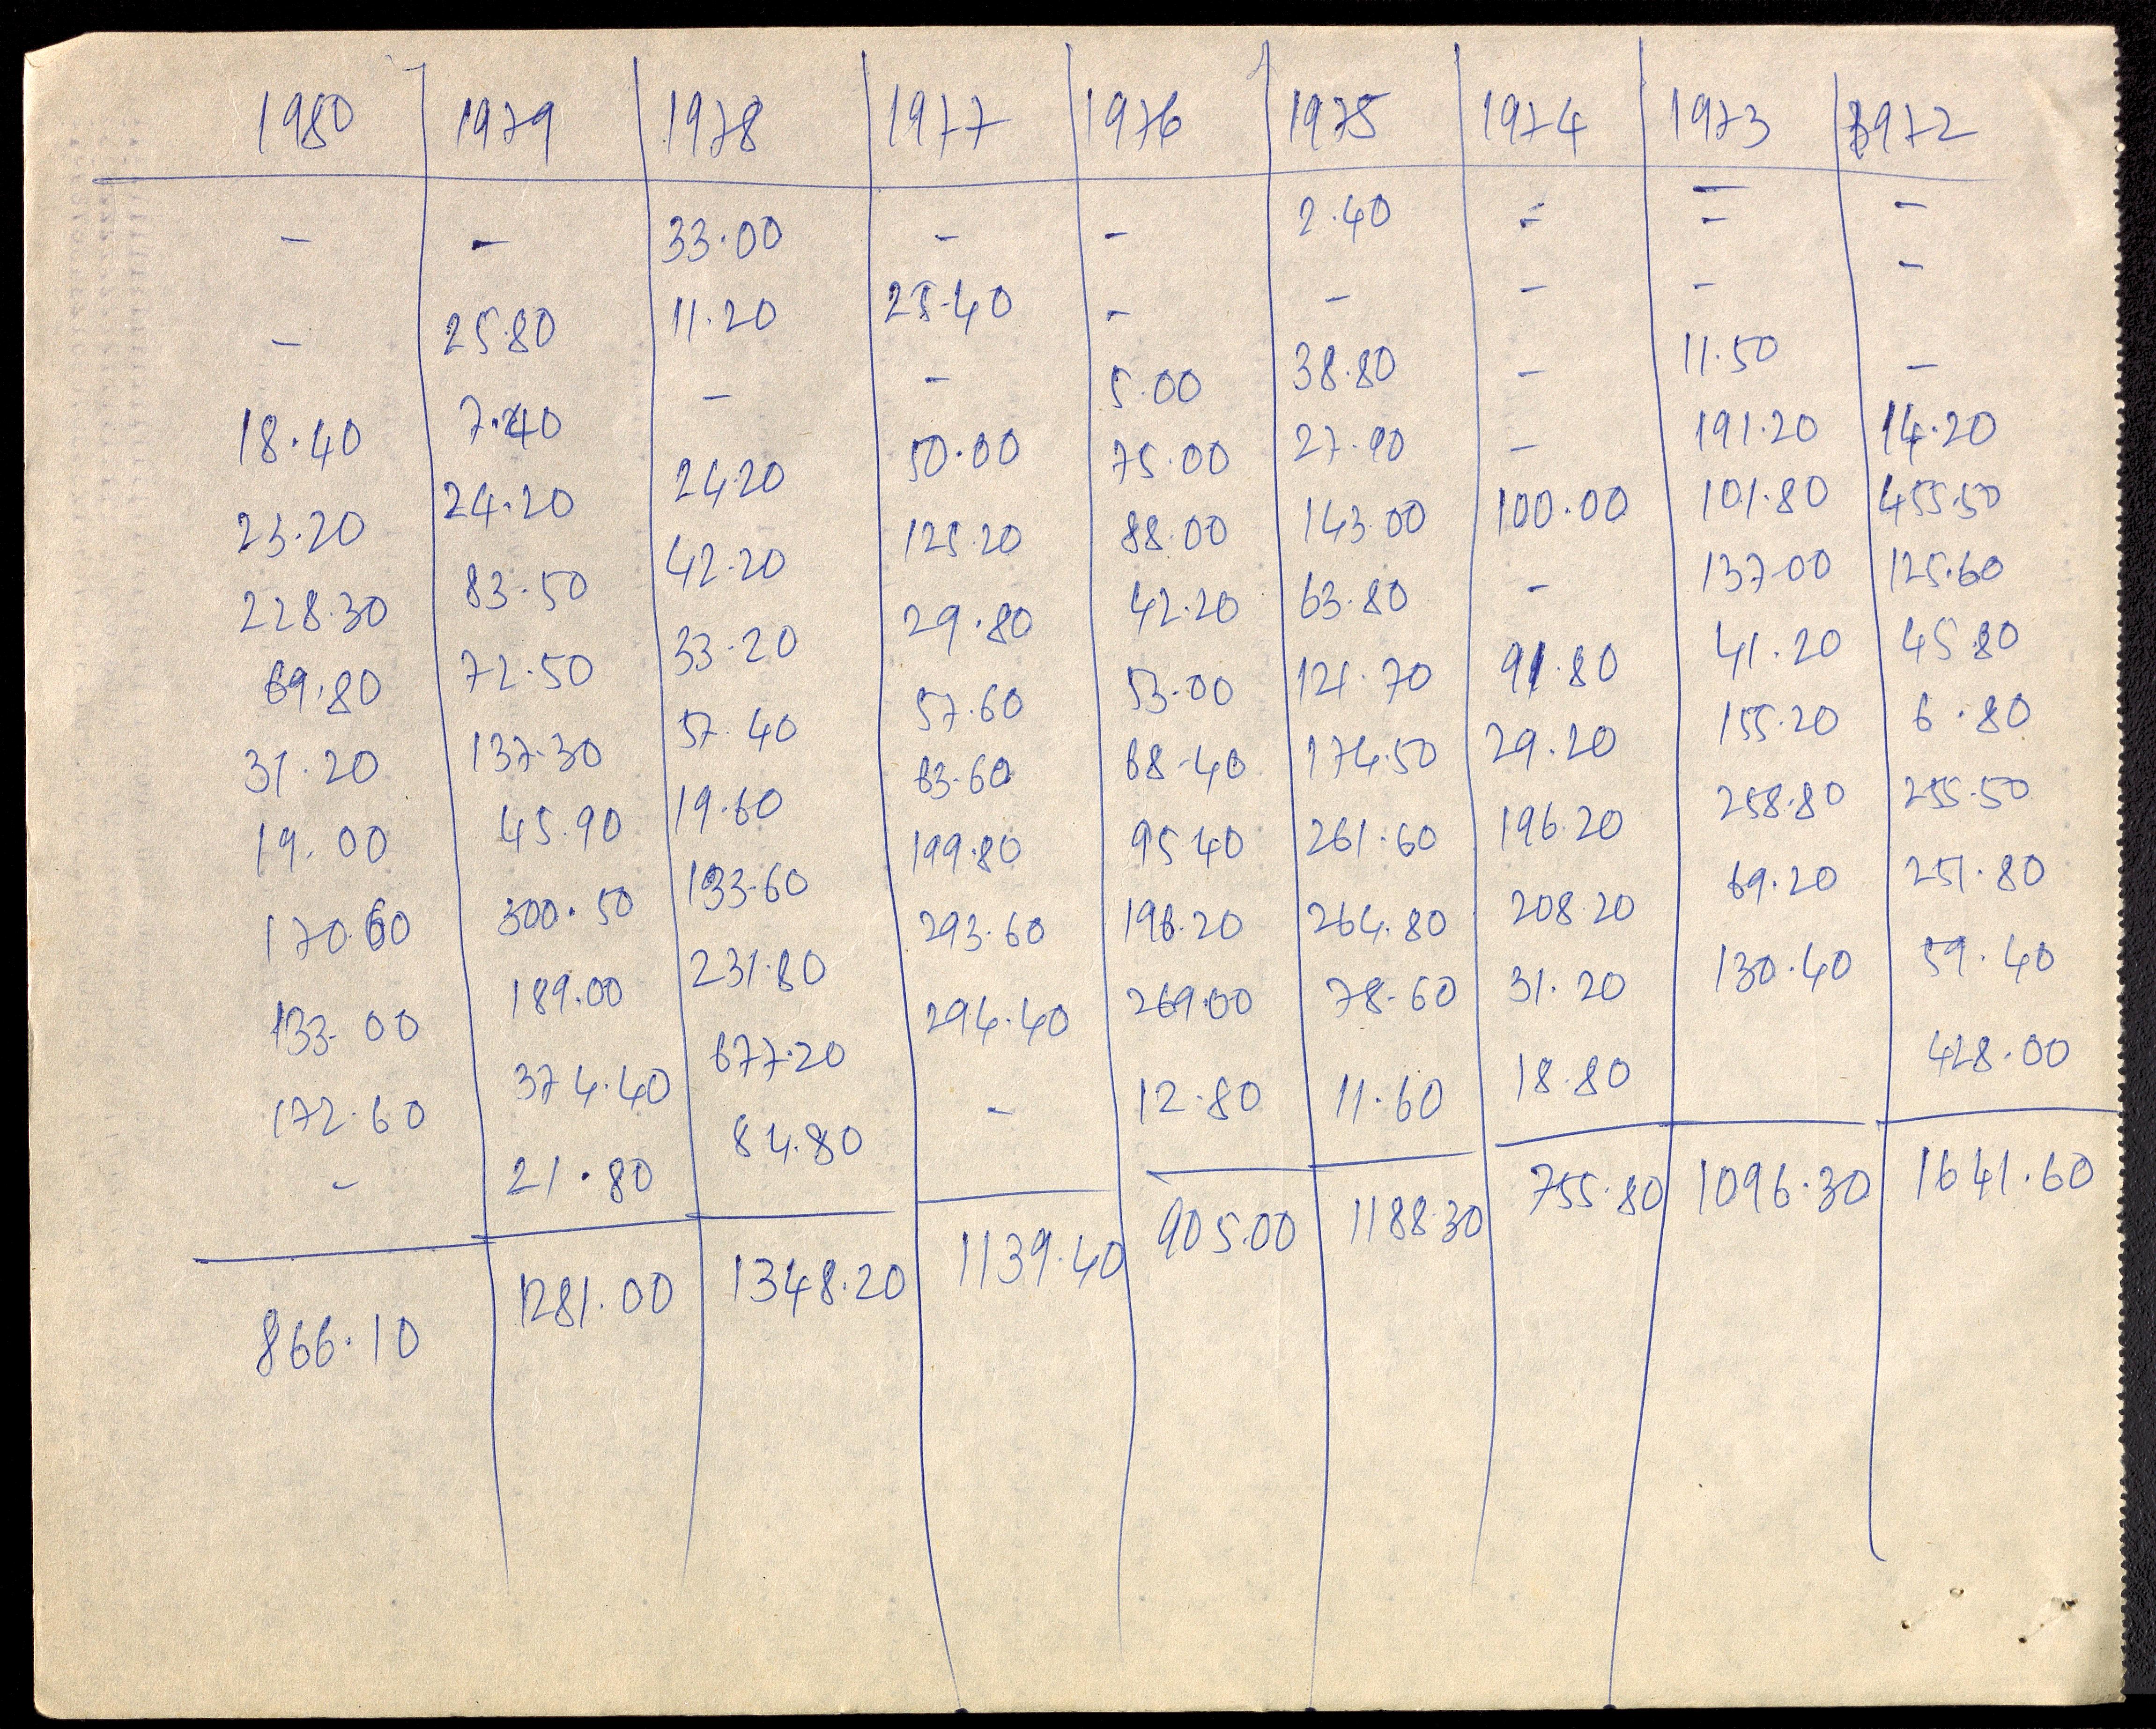 1980 1979 1978 1977 1976 1975 1974 1973 1972
- - 33.00 - - 2.40 - = -
- 25.80 11.20 25.40 - - - - -
18.40 7.40 - - 5.00 38.80 - 11.50 -
23.20 24.20 24.20 50.00 75.00 27.90 - 191.20 14.20
228.30 83.50 42.20 125.20 88.00 143.00 100.00 101.80 455.50
69.80 72.50 33.20 29.80 42.20 63.80 - 137.00 125.60
31.20 137.30 57.40 57.60 53.00 121.70 91.80 41.20 45.80
19.00 45.90 19.60 63.60 68.40 174.50 29.20 155.20 6.80
170.60 300.50 133.60 199.80 95.40 261.60 196.20 258.80 255.50
133.00 189.00 231.80 293.60 196.20 264.80 208.20 69.20 251.80
172.60 374.40 677.20 294.40 269.00 78.60 31.20 130.40 59.40
- 21.80 84.80 - 12.80 11.60 18.80 428.00
866.10 1281.00 1348.20 1139.40 905.00 1188.30 755.80 1096.30 1641.60